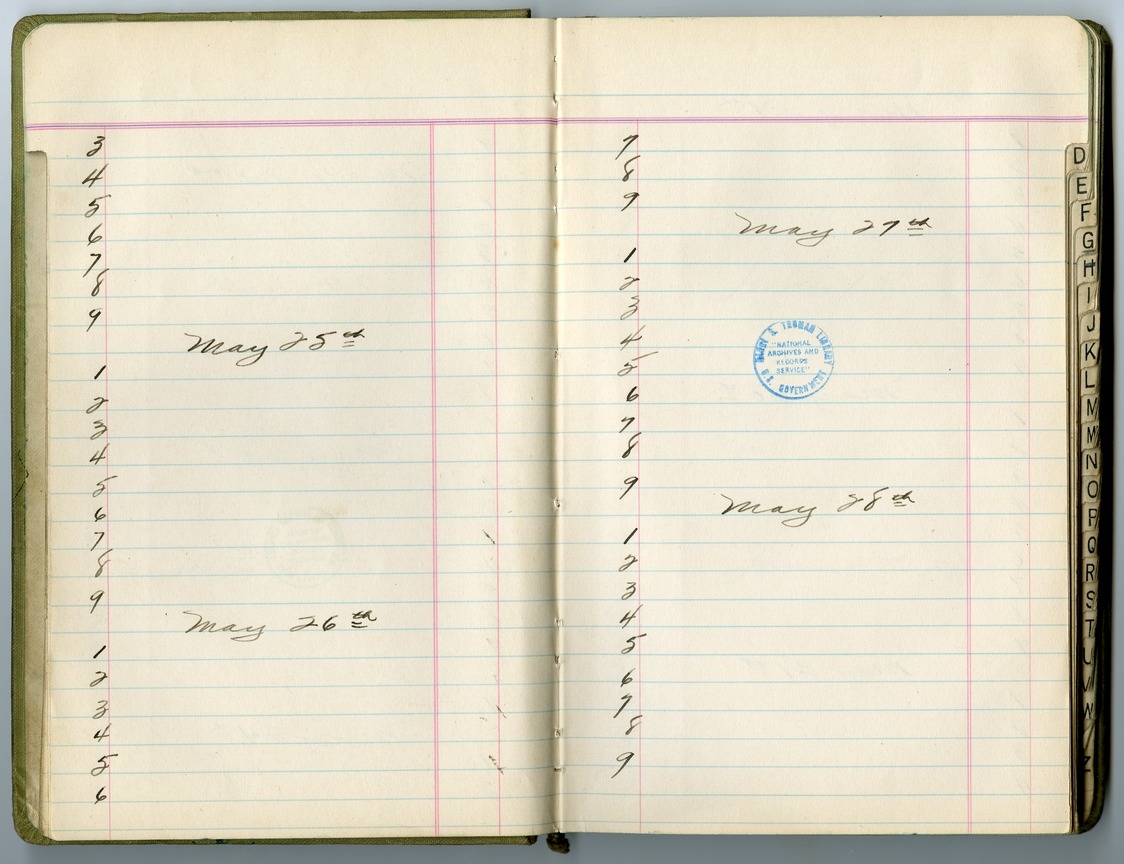 3
4
5
6
7
8
9
May 25th
1
2
3
4
5
6
7
8
9
May 26th
1
2
3
4
5
6
7
8
9
May 27th
1
2
3
4
5
6
7
8
9
May 28th
1
2
3
4
5
6
7
8
9
HARRY S. TRUMAN LIBRARY
"NATIONAL
ARCHIVES AND
RECORDS
SERVICE"
U.S. GOVERNMENT
D
E
F
G
H
I
J
K
L
M
M
N
O
P
Q
R
S
T
U
V
W
Z